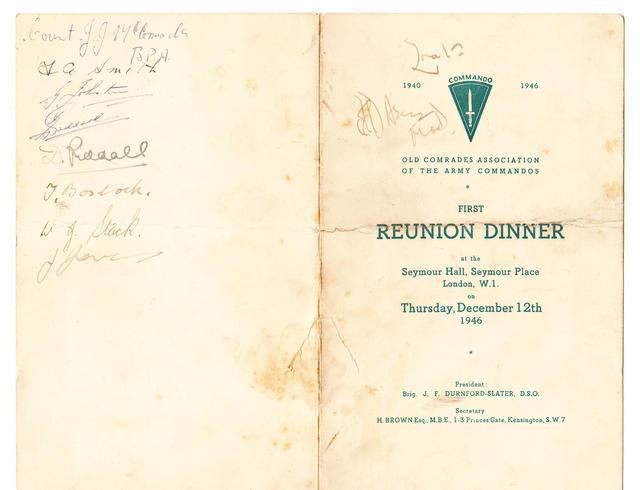 Count J.J.
B.P.A.
Smith
Johnston
D. Riddall
T. Bostock.
Slack.
1940
COMMANDO
1946
OLD COMRADES ASSOCIATION
OF THE ARMY COMMANDOS
FIRST
REUNION DINNER
at the
Seymour Hall, Seymour Place
London, W.1.
on
Thursday, December 12th
1946
President:
Brig. J. F. DURNFORD-SLATER, D.S.O.
Secretary
H. BROWN Esq., M.B.E., 1-3 Princes Gate, Kensington, S.W.7